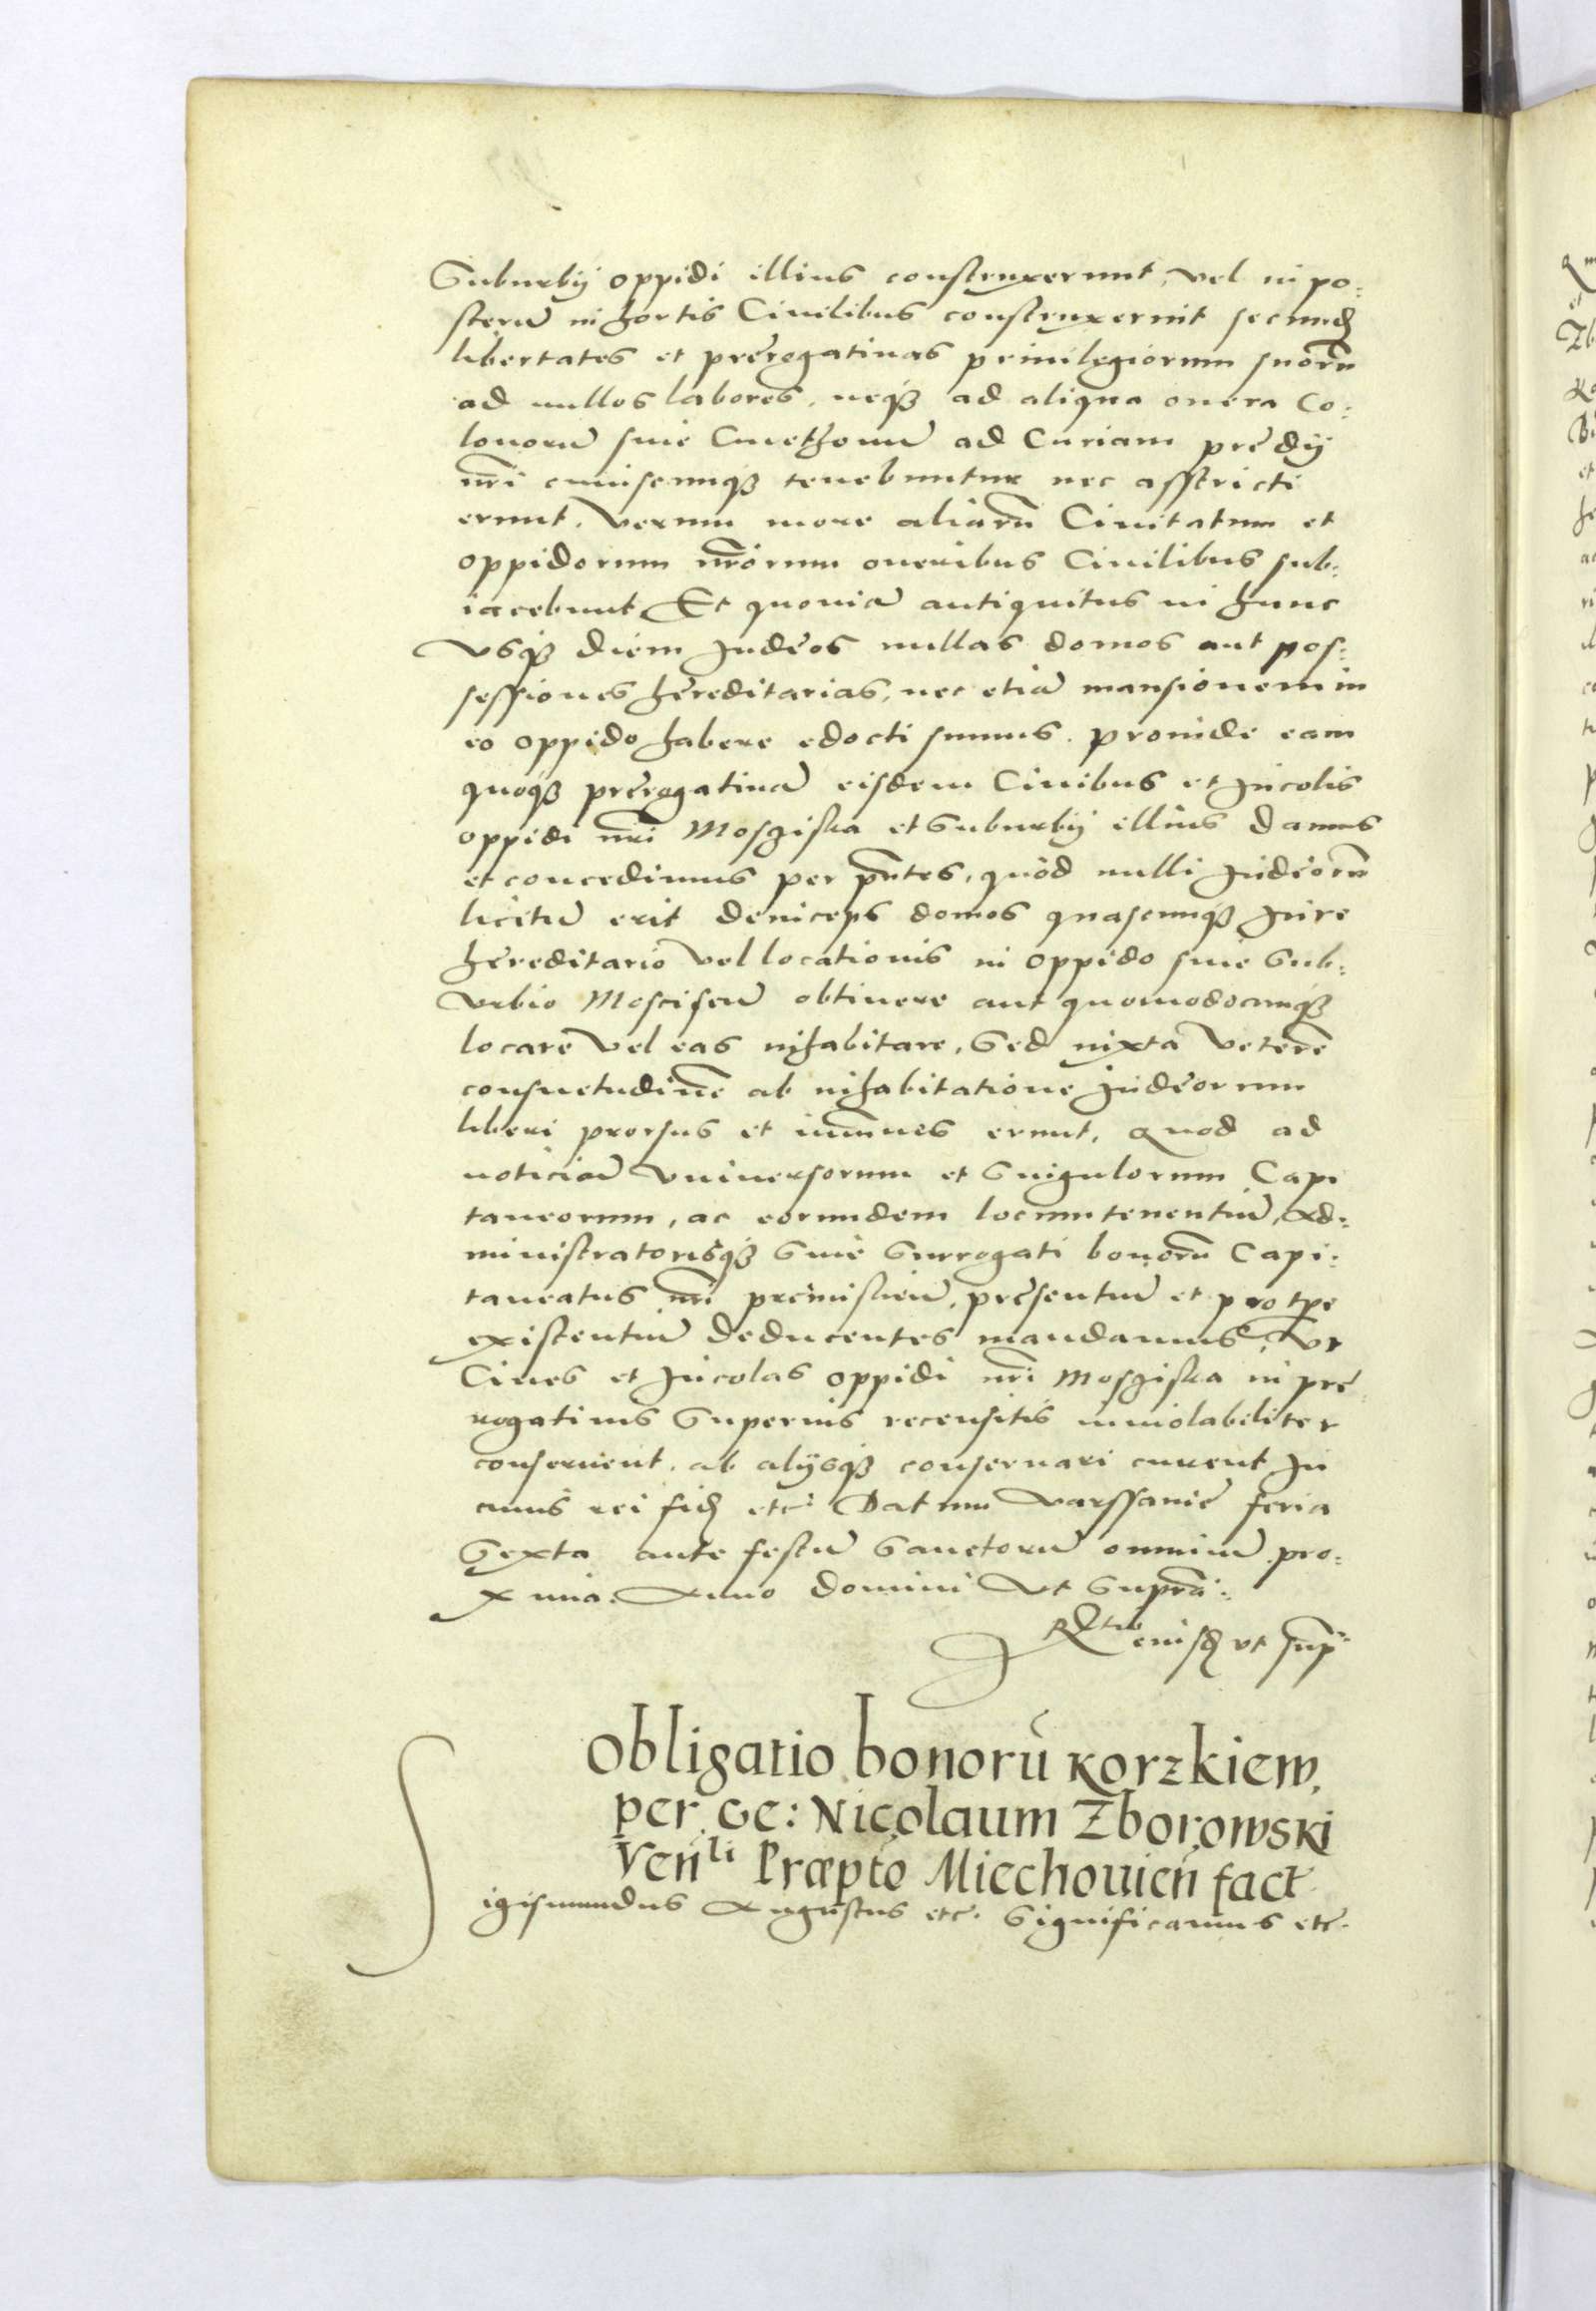 Suburbij oppidi illius construxerunt, vel in po:
sterū in hortis Ciuilibus construxerint secund
libertates et prerogatiuas priuilegiorum suorū
ad nullos labores, neq3 ad aliqua onera Co:
lonorū siue Cmethonū ad Curiam predij
nr̄i cuiuscunq3 tenebuntur nec asstricti
erunt. Verum more aliarū Ciuitatum et
oppidorum nr̄orum oneribus Ciuilibus sub:
iacebunt Et quoniā antiquitus in hunc
vsq3 diem Judeos nullas domos aut pos:
sessiones hereditarias, nec etiā mansionem in
eo oppido habere edocti sumus. proinde eam
quoq3 prerogatiuā eisdem Ciuibus et Incolis
oppidi nr̄i Mosziska et Suburbij illius damus
et concedimus per pn̄tes, quòd nulli Judeorū
licitū erit deinceps domos quascunq3 Jure
hereditario vel locationis in oppido siue Sub:
vrbio Mosciscū obtinere aut quomodocunq3
locare vel eas inhabitare, Sed iuxta veterē
consuetudinē ab inhabitatione Judeorum
liberi prorsus et im̄unes erunt, Quod ad
noticiam vniuersorum et Singulorum Capi
taneorum, ac eorundem locumtenentiū, Ad:
ministratorisq3 Siue Surrogati bonorū Capi:
taneatus nr̄i premislien̄, presentiū et pro tp̄e
existentiū deducentes mandamus, Vt
Ciues et Incolas oppidi nr̄i Mosziska in pre
rogatiuis Superius recensitis inuiolabiliter
conseruent, ab alijsq3 conseruari curent In
cuius rei fid etc: Datum Varssauie feria
Sexta ante festū Sanctorū omniū pro:
xima. Anno domini Vt Supra:
Rtio eiusd vt sup̄
Obligatio bonorū Korzkiew,
per Ge: Nicolaum Zborowski
Ven̄li Præpto Miechouien̄ fact
Sigismundus Augustus etc. Significamus etc.